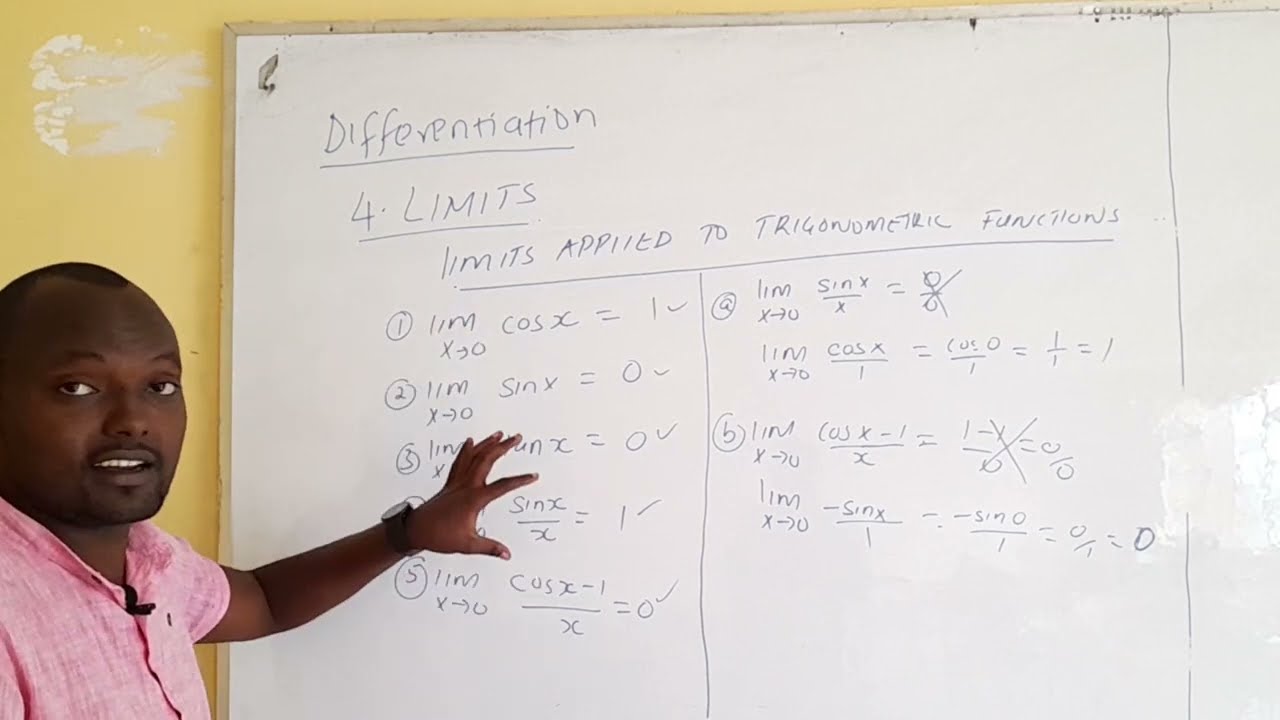 Differentiation
4. LIMITS
LIMITS APPLIED TO TRIGONOMETRIC FUNCTIONS
① lim x→0 cosx = 1 ✓
② lim x→0 sinx = 0 ✓
③ lim x anx = 0 ✓
sinx/x = 1 ✓
⑤ lim x→0 cosx-1/x = 0 ✓
ⓐ lim x→0 sinx/x = 0/0
lim x→0 cosx/1 = cos0/1 = 1/1 = 1
ⓑ lim x→0 cosx-1/x = 1-1/0 = 0/0
lim x→0 -sinx/1 = -sin0/1 = 0/1 = 0